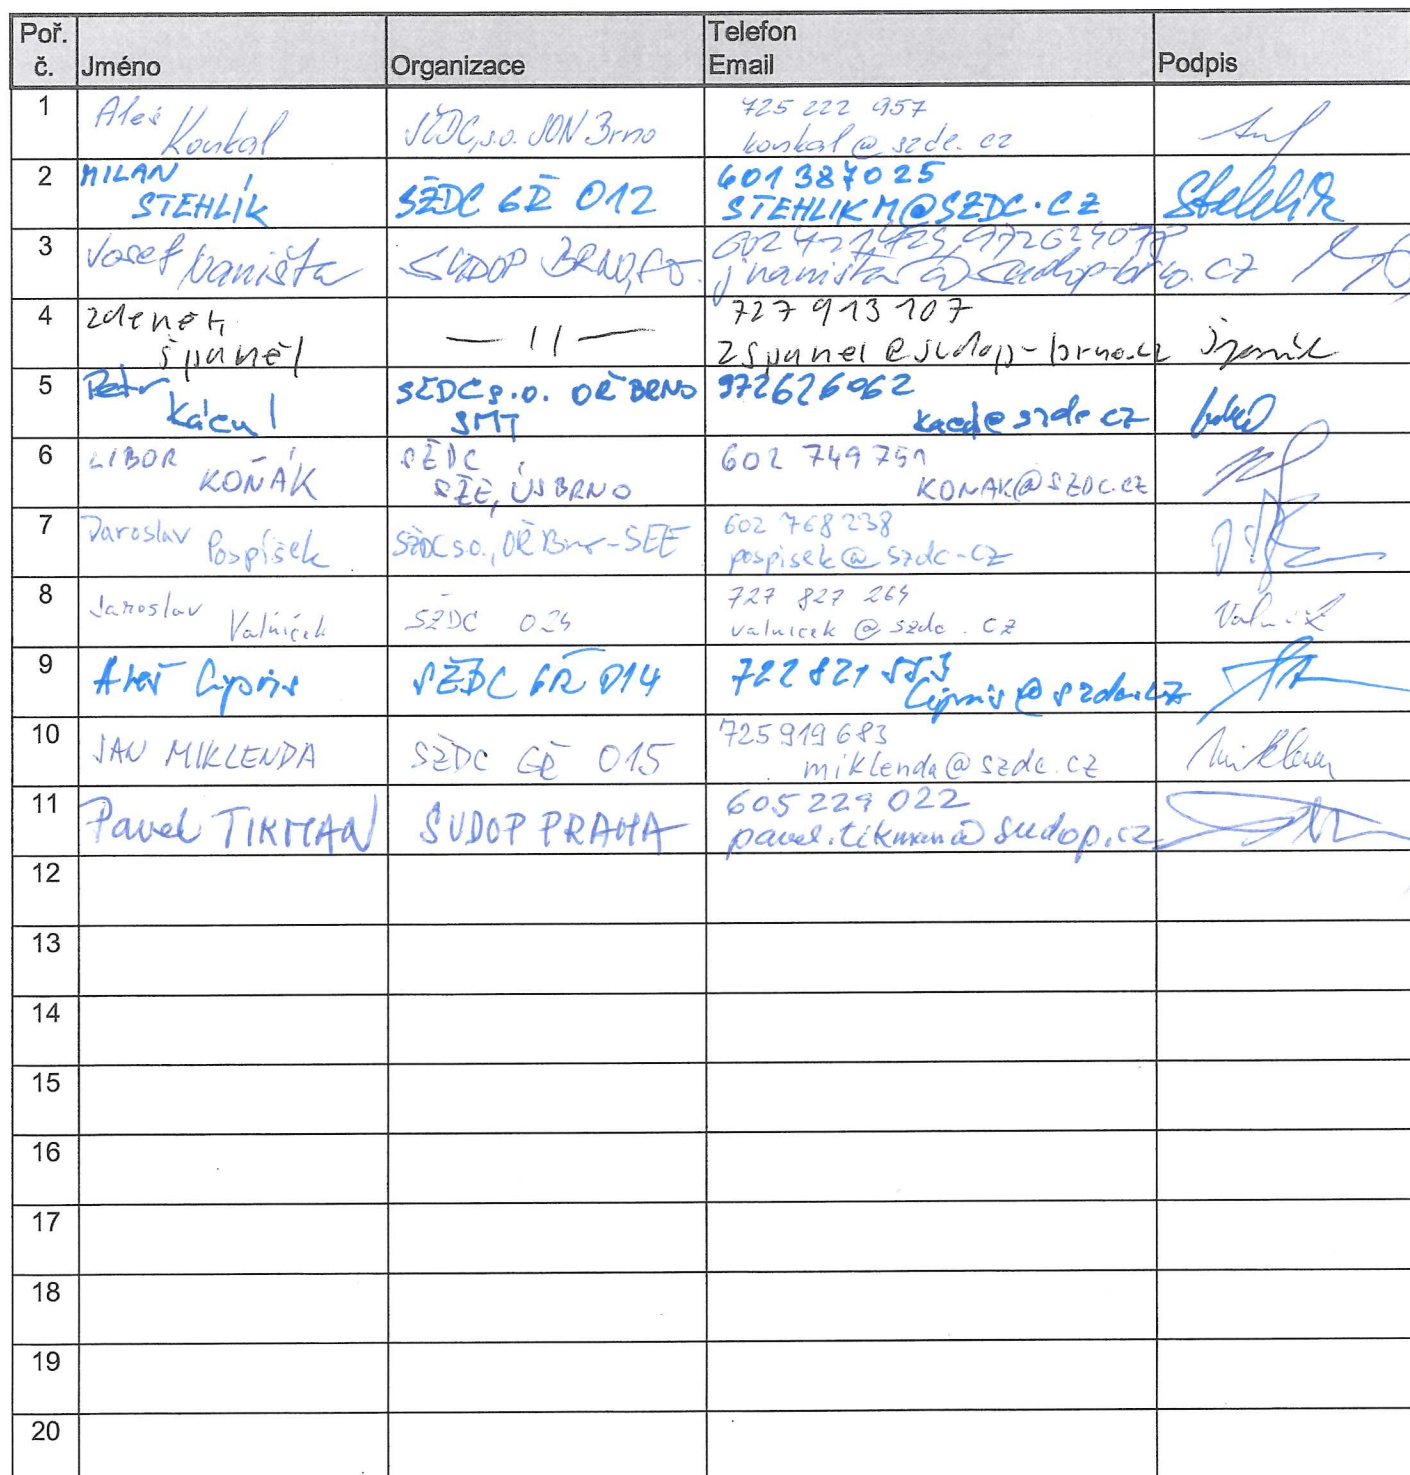 Poř. č. Jméno Organizace Telefon Email Podpis
1 Aleš Koukal SŽDC, s.o. SON Brno 725 222 957 koukal@szdc.cz
2 MILAN STEHLÍK SŽDC GŘ O12 601 387 025 STEHLIKM@SZDC.CZ Stehlík
3 Josef Naništa SUDOP BRNO, 602 421 725, 972624077
4 Zdeněk Španěl — 11 — 727 913 107 zspanel@sudop-brno.cz
5 Petr Kácal SŽDC s.o. OŘ BRNO SMT 972626062 @szdc.cz
6 LIBOR KOŇÁK SŽDC SŽE, ÚS BRNO 602 749 751 KONAK@SZDC.CZ
7 Jaroslav Pospíšek SŽDC s.o., OŘ Brno-SEE 602 768 238 pospisek@szdc.cz
8 Jaroslav Valníček SŽDC O24 727 827 264 valnicek@szdc.cz
9 Aleš SŽDC GŘ O14 722 821 553
10 JAN MIKLENDA SŽDC GŘ O15 725 919 683 miklenda@szdc.cz
11 Pavel TIKMAN SUDOP PRAHA 605 229 022 pavel.tikman@sudop.cz
12
13
14
15
16
17
18
19
20